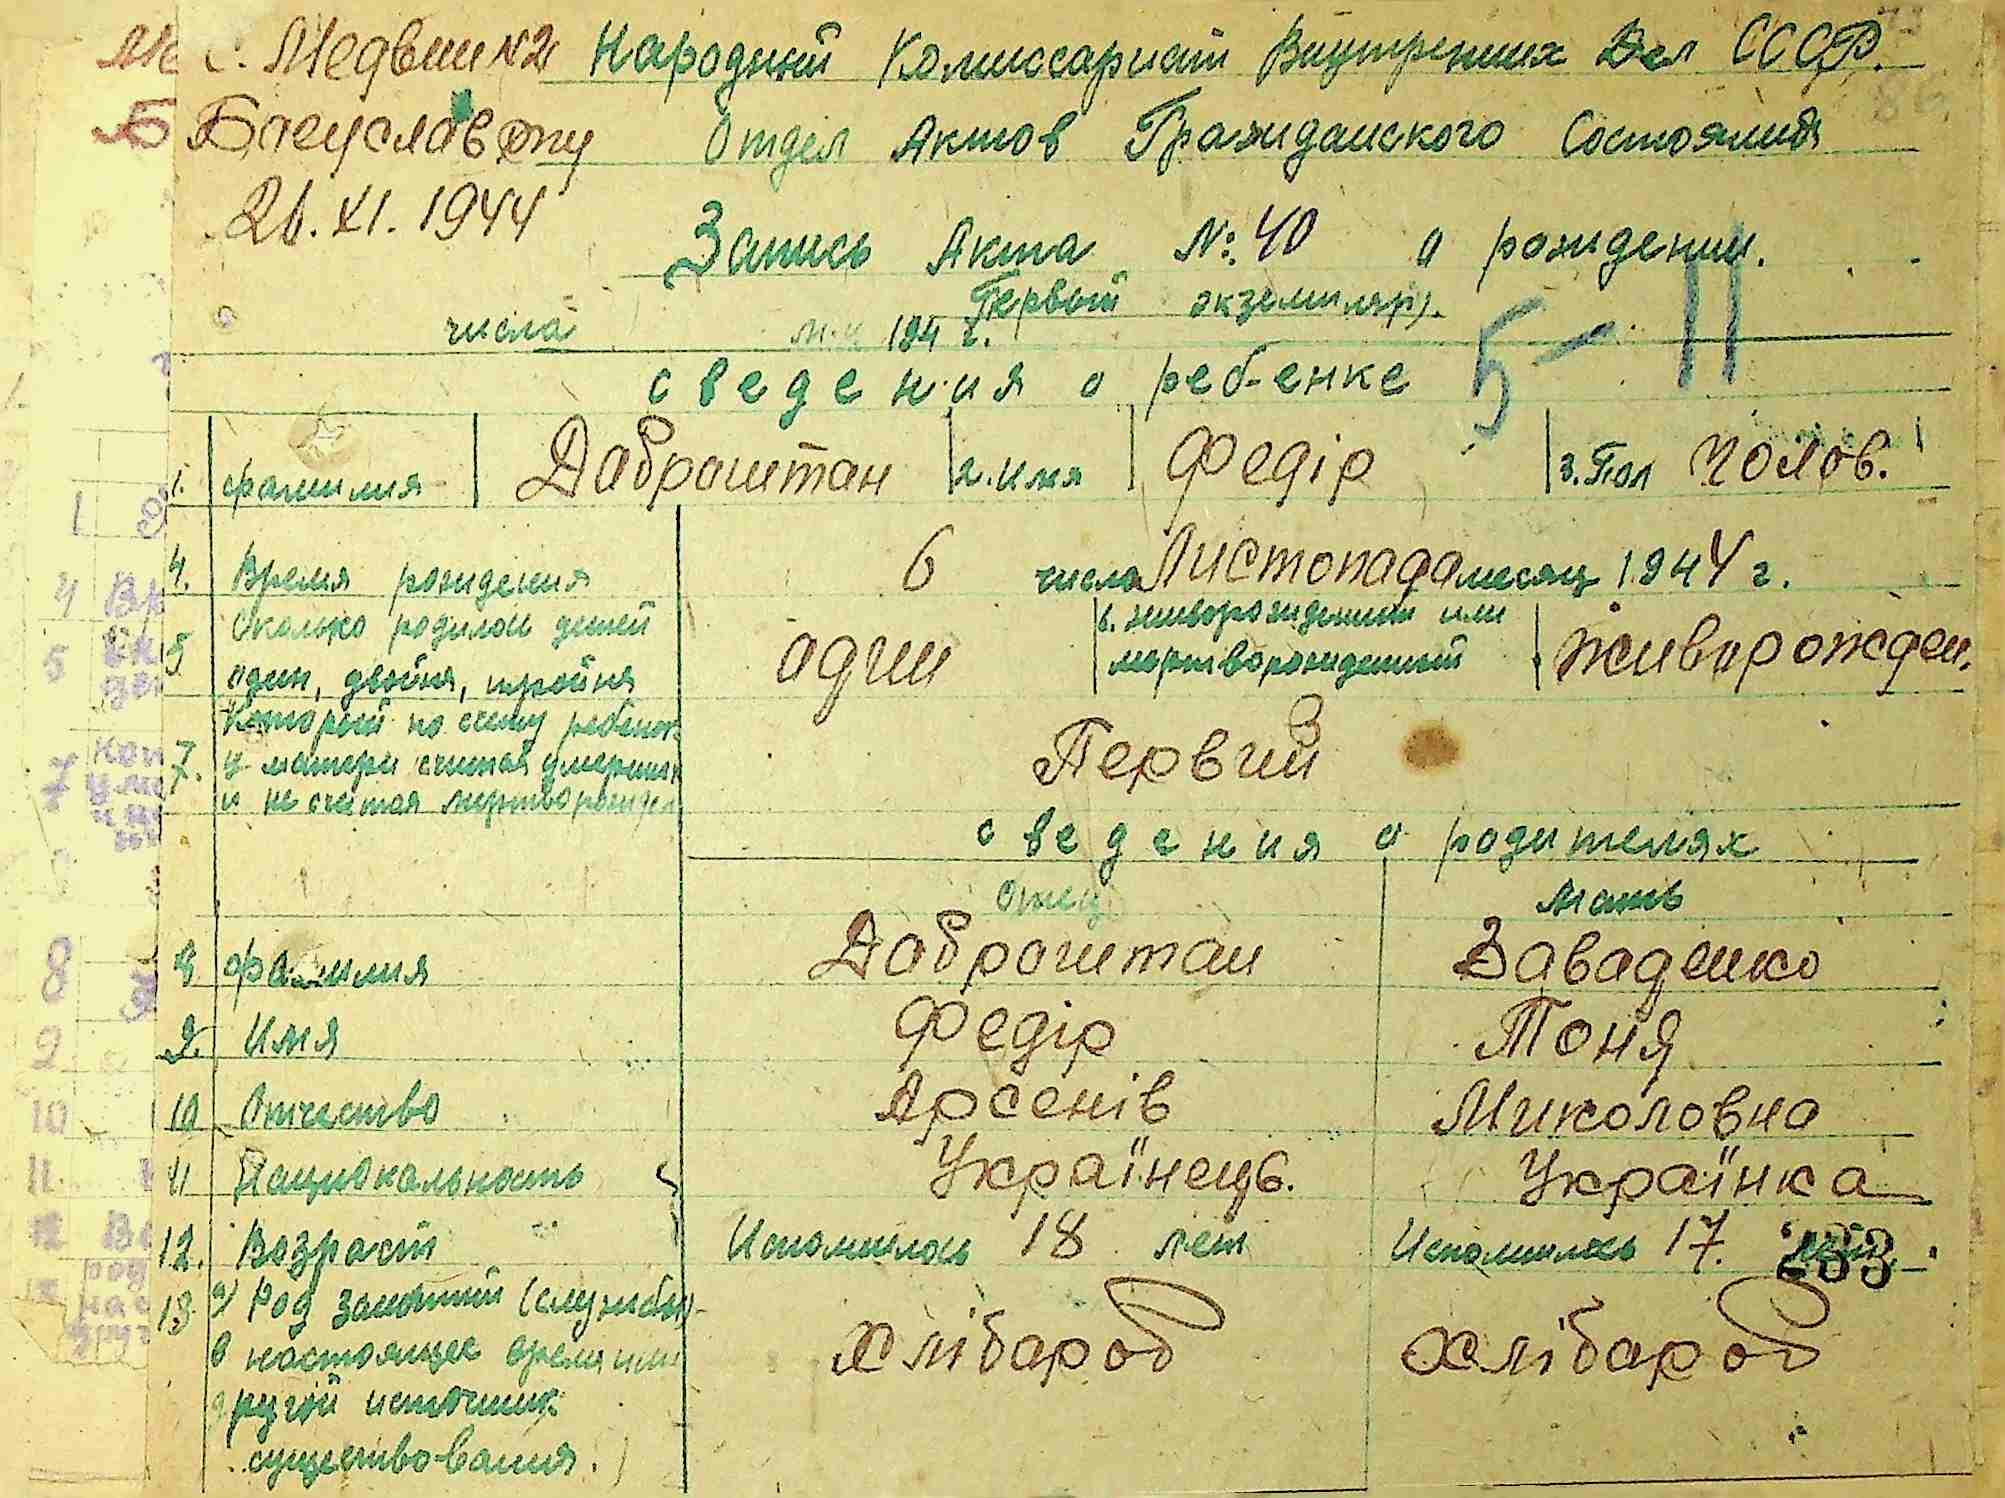 с. Медвин №2 Народний Комиссариат Внутренних Дел СССР.
Отдел Актов Гражданского Состояния
26.XI.1944
Запись Акта №: 40 о рождении.
Первый экземпляр).
числа м-ц 194 г.
5 - 11
сведения о ребенке
1. фамилия Даброштан 2. имя Федір 3. Пол чолов.
4. Время рождения 6 числа Листопада месяц 1944 г.
5 Сколько родилой детей один, двойня, тройня один 6. живорожденный или мертворожденный живорожден.
7. Который по счету ребенок
у матери считая умерших
и не считая мертворожден Первий
сведения о родителях
Отец Мать
8 фамилия Даброштан Заваденко
9. Имя Федір Тоня
10 Отчество Арсенів Миколовна
11 Национальность Українець. Українка
12. Возраст Исполнилось 18 лет Исполнилось 17. лет
233
13 а) Род занятий (службы)
в настоящее время или
другой источник
существования. Хлібароб Хлібароб
8
9
10
11.